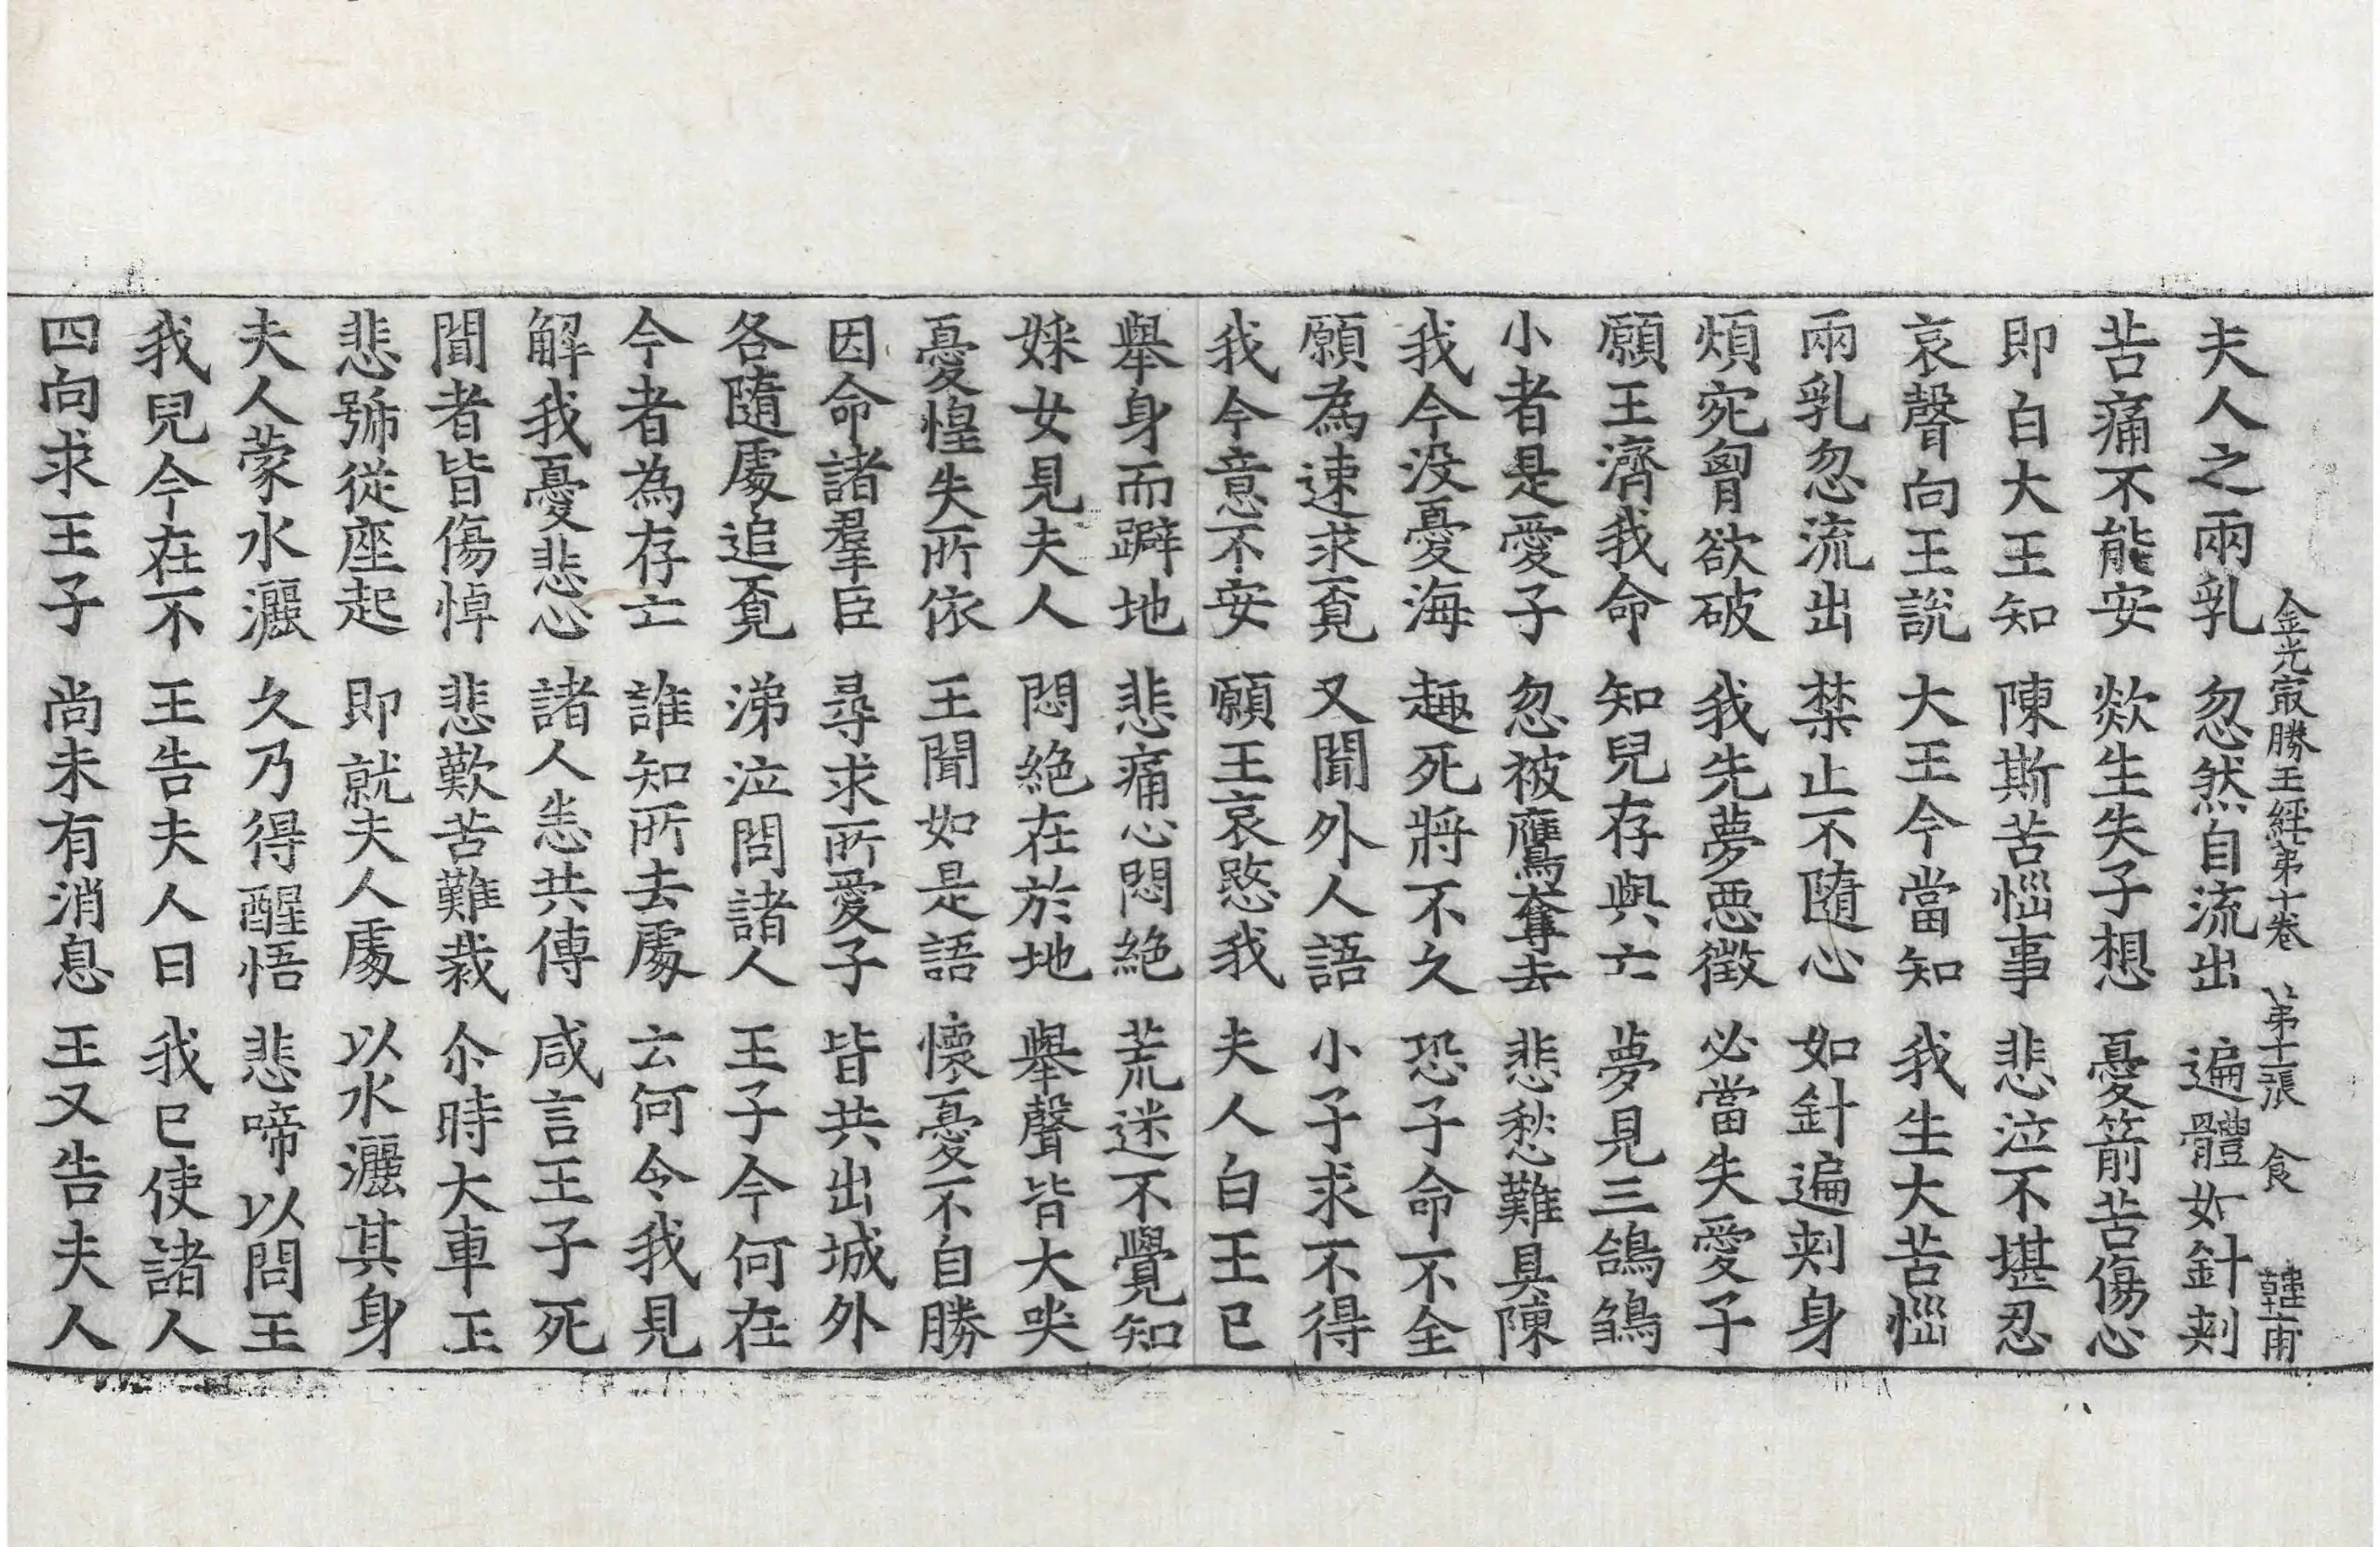 金光㝡勝王經第十卷 第十二張 食 韓甫
夫人之兩乳 忽然自流出 遍體如針刾
苦痛不能安 欻生失子想 憂箭苦傷心
即白大王知 陳斯苦惱事 悲泣不堪忍
哀聲向王說 大王今當知 我生大苦惱
兩乳忽流出 禁止不隨心 如針遍刾身
煩宛胷欲破 我先夢惡徵 必當失愛子
願王濟我命 知兒存與亡 夢見三鴿鶵
小者是愛子 忽被鷹奪去 悲愁難具陳
我今没憂海 趣死將不久 恐子命不全
願為速求覓 又聞外人語 小子求不得
我今意不安 願王哀愍我 夫人白王已
舉身而躃地 悲痛心悶絕 荒迷不覺知
婇女見夫人 悶絕在於地 舉聲皆大哭
憂惶失所依 王聞如是語 懷憂不自勝
因命諸羣臣 尋求所愛子 皆共出城外
各隨處追覓 涕泣問諸人 王子今何在
今者為存亡 誰知所去處 云何令我見
解我憂悲心 諸人悉共傳 咸言王子死
聞者皆傷悼 悲歎苦難裁 尒時大車王
悲號從座起 即就夫人處 以水灑其身
夫人蒙水灑 久乃得醒悟 悲啼以問王
我兒今在不 王告夫人曰 我已使諸人
四向求王子 尚未有消息 王又告夫人